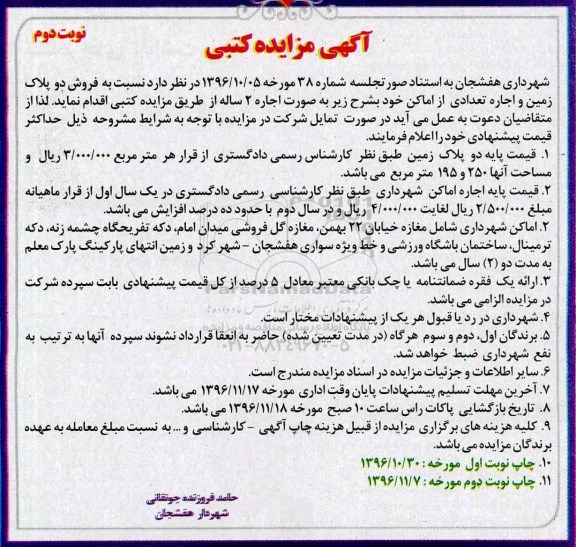 نوبت دوم
آگهی مزایده کتبی
شهرداری هفشجان به استناد صورتجلسه شماره ۳۸ مورخه ۱۳۹۶/۱۰/۰۵ در نظر دارد نسبت به فروش دو پلاک
زمین و اجاره تعدادی از اماکن خود بشرح زیر به صورت اجاره ۲ ساله از طریق مزایده کتبی اقدام نماید. لذا از
متقاضیان دعوت به عمل می آید در صورت تمایل شرکت در مزایده با توجه به شرایط مشروحه ذیل حداکثر
قیمت پیشنهادی خود را اعلام فرمایند.
۱. قیمت پایه دو پلاک زمین طبق نظر کارشناس رسمی دادگستری از قرار هر متر مربع ۳/۰۰۰/۰۰۰ ریال و
مساحت آنها ۲۵۰ و ۱۹۵ متر مربع می باشد.
۲. قیمت پایه اجاره اماکن شهرداری طبق نظر کارشناسی رسمی دادگستری در یک سال اول از قرار ماهیانه
مبلغ ۲/۵۰۰/۰۰۰ ریال لغایت ۴/۰۰۰/۰۰۰ ریال و در سال دوم با حدود ده درصد افزایش می باشد.
۲. اماکن شهرداری شامل مغازه خیابان ۲۲ بهمن، مغازه گل فروشی میدان امام، دکه تفریحگاه چشمه زنه، دکه
ترمینال، ساختمان باشگاه ورزشی و خط ویژه سواری هفشجان - شهرکرد و زمین انتهای پارکینگ پارک معلم
به مدت دو (۲) سال می باشد.
۳. ارائه یک فقره ضمانتنامه یا چک بانکی معتبر معادل ۵ درصد از کل قیمت پیشنهادی بابت سپرده شرکت
در مزایده الزامی می باشد.
۴. شهرداری در رد یا قبول هر یک از پیشنهادات مختار است.
۵. برندگان اول، دوم و سوم هرگاه (در مدت تعیین شده) حاضر به انعقا قرارداد نشوند سپرده آنها به ترتیب به
نفع شهرداری ضبط خواهد شد.
۶. سایر اطلاعات و جزئیات مزایده در اسناد مزایده مندرج است.
۷. آخرین مهلت تسلیم پیشنهادات پایان وقت اداری مورخه ۱۳۹۶/۱۱/۱۷ می باشد.
۸. تاریخ بازگشایی پاکات راس ساعت ۱۰ صبح مورخه ۱۳۹۶/۱۱/۱۸ می باشد.
۹. کلیه هزینه های برگزاری مزایده از قبیل هزینه چاپ آگهی - کارشناسی و ... به نسبت مبلغ معامله به عهده
برندگان مزایده می باشد.
۱۰. چاپ نوبت اول مورخه : ۱۳۹۶/۱۰/۳۰
۱۱. چاپ نوبت دوم مورخه : ۱۳۹۶/۱۱/۷
حامد فروزنده جونقانی
شهردار هفشجان